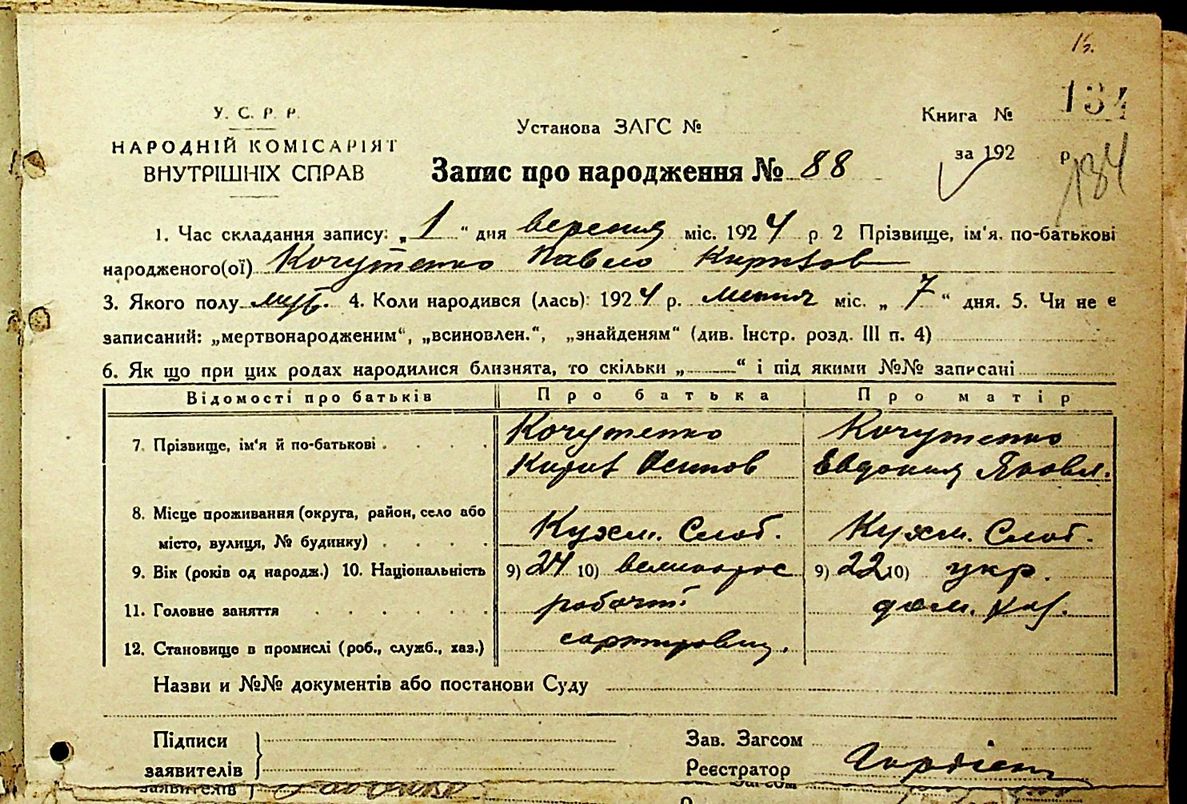 15.
У. С. Р. Р.
НАРОДНІЙ КОМІСАРІЯТ
ВНУТРІШНІХ СПРАВ
Установа ЗАГС №
Книга № 134
за 192 р. 134
Запис про народження № 88
1. Час складання запису: „1“ дня вересня міс. 1924 р 2 Прізвище, ім'я. по-батькові
народженого(ої) Кочутенко Павло
3. Якого полу муж. 4. Коли народився (лась): 1924 р. липня міс. „7“ дня. 5. Чи не є
записаний: „мертвонародженим“, „всиновлен.“, „знайденям“ (див. Інстр. розд. III п. 4)
6. Як що при цих родах народилися близнята, то скільки „ “ і під якими №№ записані
Відомості про батьків Про батька Про матір
7. Прізвище, ім'я й по-батькові Кочутенко Кочутенко
Осипов Евдокия Яковл.
8. Місце проживання (округа, район, село або
місто, вулиця, № будинку) Кухм. Слоб. Кухм. Слоб.
9. Вік (років од народж.) 10. Національність 9) 24 10) великорос 9) 22 10) укр.
11. Головне заняття робочий дом. хоз.
12. Становище в промислі (роб., служб., хаз.)
Назви и №№ документів або постанови Суду
Підписи
заявителів
Зав. Загсом
Реєстратор
заявителів
Загсом